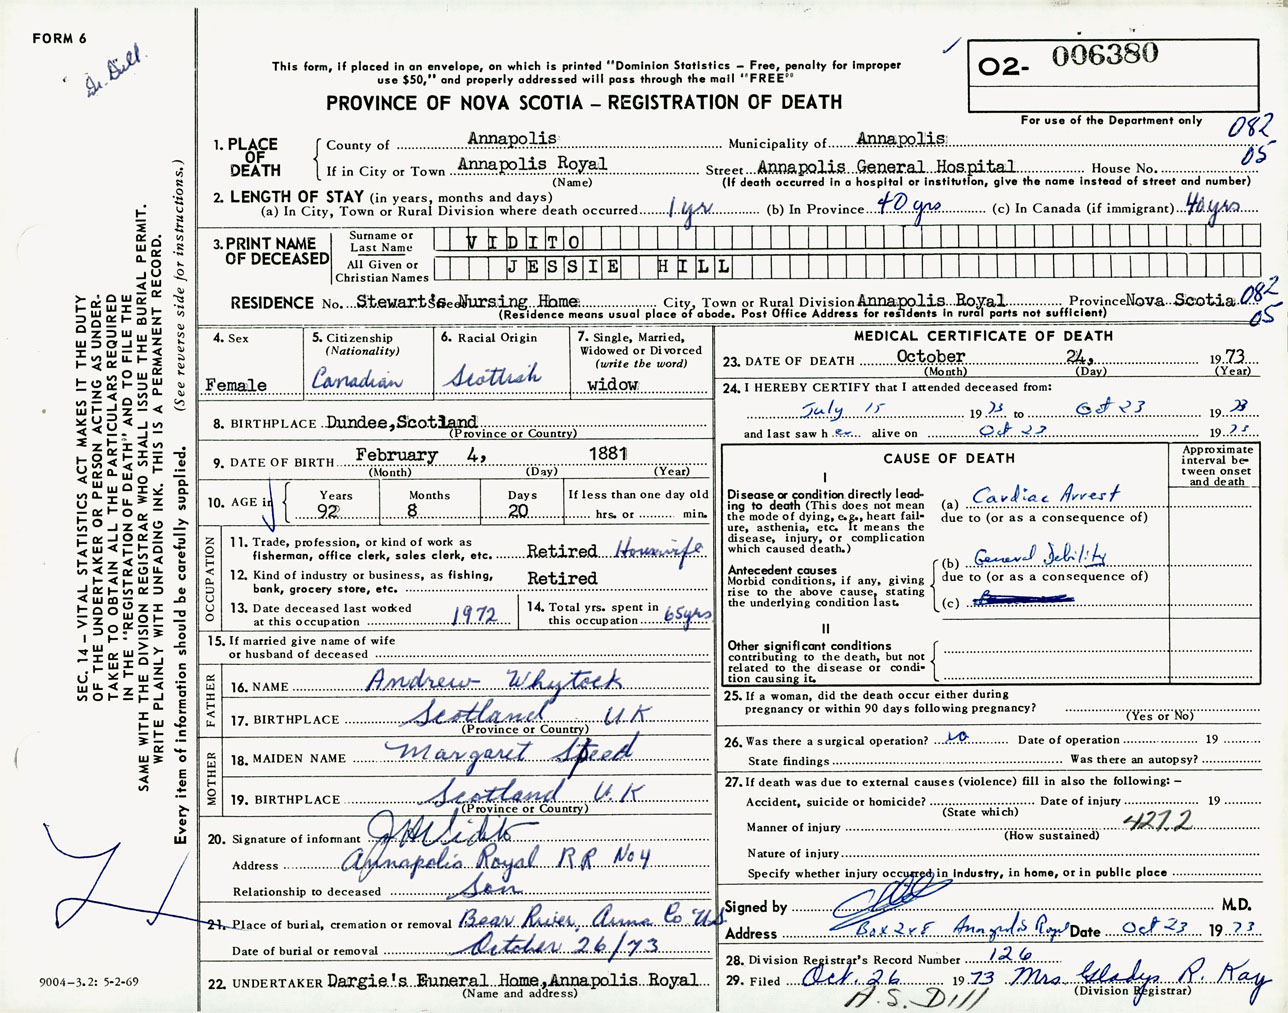 FORM 6
Dr. Dill.
This form, if placed in an envelope, on which is printed "Dominion Statistics – Free, penalty for improper
use $50," and properly addressed will pass through the mail "FREE"
PROVINCE OF NOVA SCOTIA – REGISTRATION OF DEATH
O2- 006380
For use of the Department only
082
05
1. PLACE OF DEATH
County of Annapolis Municipality of Annapolis
If in City or Town Annapolis Royal Street Annapolis General Hospital House No.
(Name) (If death occurred in a hospital or institution, give the name instead of street and number)
2. LENGTH OF STAY (in years, months and days)
(a) In City, Town or Rural Division where death occurred 1 yr (b) In Province 40 yrs (c) In Canada (if immigrant) 40 yrs
3. PRINT NAME OF DECEASED
Surname or Last Name VIDITO
All Given or Christian Names JESSIE HILL
RESIDENCE No. Stewart's Nursing Home City, Town or Rural Division Annapolis Royal Province Nova Scotia 082
05
(Residence means usual place of abode. Post Office Address for residents in rural parts not sufficient)
4. Sex
Female
5. Citizenship
(Nationality)
Canadian
6. Racial Origin
Scottish
7. Single, Married,
Widowed or Divorced
(write the word)
widow
8. BIRTHPLACE Dundee, Scotland
(Province or Country)
9. DATE OF BIRTH February 4, 1881
(Month) (Day) (Year)
10. AGE in
Years Months Days If less than one day old
92 8 20 hrs. or min.
OCCUPATION
11. Trade, profession, or kind of work as
fisherman, office clerk, sales clerk, etc. Retired Housewife
12. Kind of industry or business, as fishing,
bank, grocery store, etc. Retired
13. Date deceased last worked
at this occupation 1972
14. Total yrs. spent in
this occupation 65 yrs
15. If married give name of wife
or husband of deceased
FATHER
16. NAME Andrew Whytock
17. BIRTHPLACE Scotland U K
(Province or Country)
MOTHER
18. MAIDEN NAME Margaret Speed
19. BIRTHPLACE Scotland U.K
(Province or Country)
20. Signature of informant Vidito
Address Annapolis Royal RR No 4
Relationship to deceased Son
21. Place of burial, cremation or removal Bear River, Anna Co
Date of burial or removal October 26/73
22. UNDERTAKER Dargie's Funeral Home, Annapolis Royal
(Name and address)
MEDICAL CERTIFICATE OF DEATH
23. DATE OF DEATH October 24, 1973
(Month) (Day) (Year)
24. I HEREBY CERTIFY that I attended deceased from:
July 15 1973 to Oct 23 1973
and last saw her alive on Oct 23 1973
CAUSE OF DEATH
Approximate
interval be-
tween onset
and death
I
Disease or condition directly lead-
ing to death (This does not mean
the mode of dying, e.g., heart fail-
ure, asthenia, etc. It means the
disease, injury, or complication
which caused death.)
(a) Cardiac Arrest
due to (or as a consequence of)
Antecedent causes
Morbid conditions, if any, giving
rise to the above cause, stating
the underlying condition last.
(b) General Debility
due to (or as a consequence of)
(c)
II
Other significant conditions
contributing to the death, but not
related to the disease or condi-
tion causing it.
25. If a woman, did the death occur either during
pregnancy or within 90 days following pregnancy?
(Yes or No)
26. Was there a surgical operation? no Date of operation 19
State findings Was there an autopsy?
27. If death was due to external causes (violence) fill in also the following: –
Accident, suicide or homicide? Date of injury 19
(State which)
Manner of injury 427.2
(How sustained)
Nature of injury
Specify whether injury occurred in industry, in home, or in public place
Signed by M.D.
Address Box 248 Annapolis Royal Date Oct 23 1973
28. Division Registrar's Record Number 126
29. Filed Oct. 26 1973 Mrs Gladys R. Kay
(Division Registrar)
A.S. Dill
SEC. 14 – VITAL STATISTICS ACT MAKES IT THE DUTY
OF THE UNDERTAKER OR PERSON ACTING AS UNDER-
TAKER TO OBTAIN ALL THE PARTICULARS REQUIRED
IN THE "REGISTRATION OF DEATH" AND TO FILE THE
SAME WITH THE DIVISION REGISTRAR WHO SHALL ISSUE THE BURIAL PERMIT.
WRITE PLAINLY WITH UNFADING INK. THIS IS A PERMANENT RECORD.
Every item of information should be carefully supplied. (See reverse side for instructions.)
9004–3.2: 5-2-69